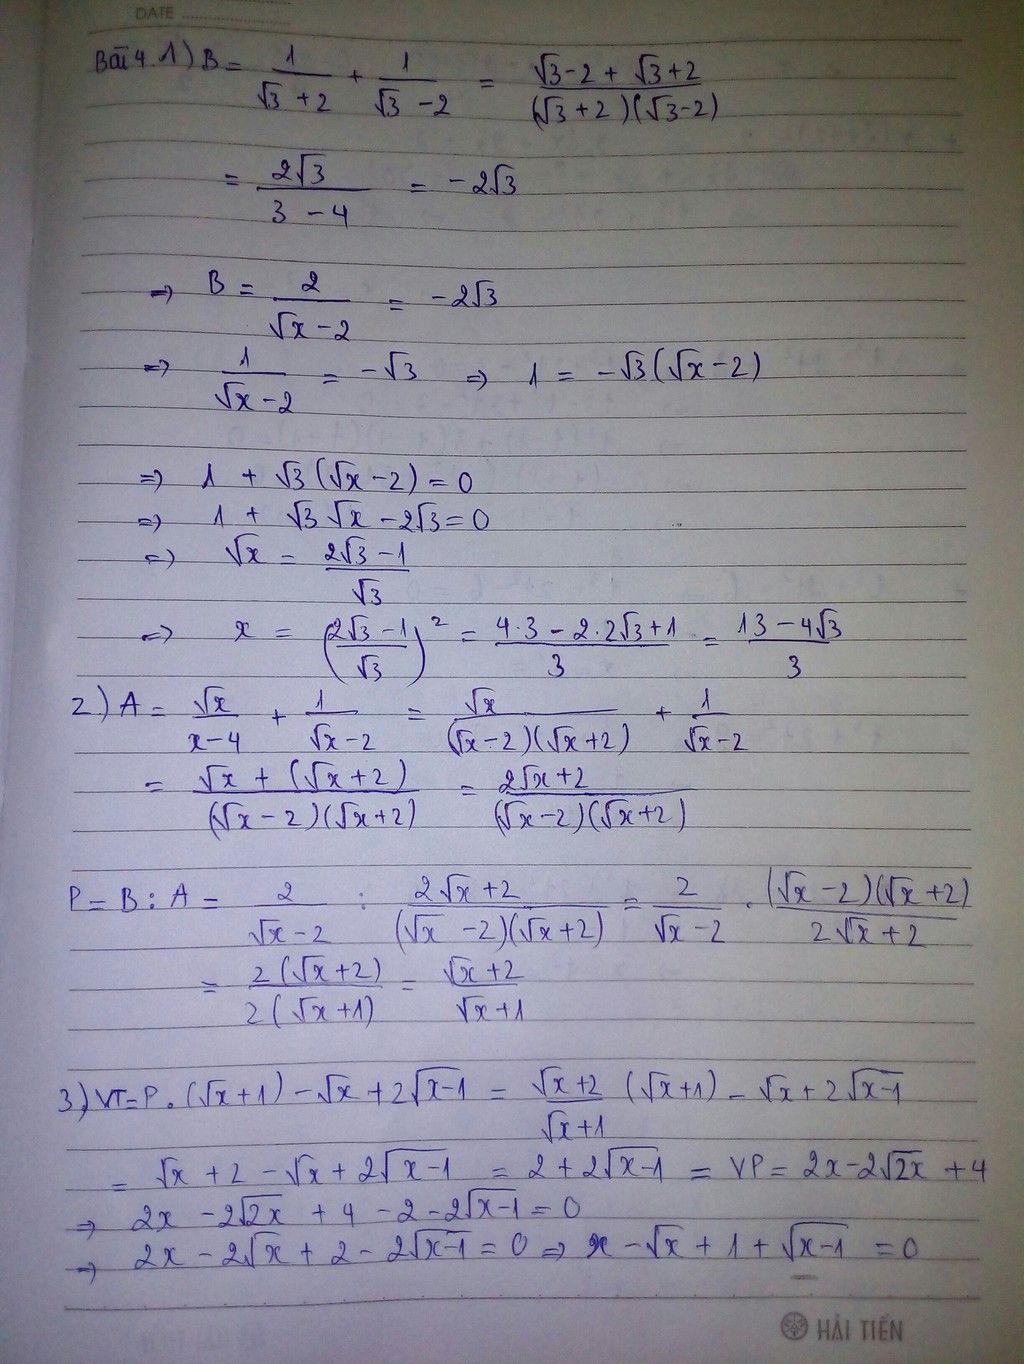 DATE
Bài 4. 1) B = 1/(√3 + 2) + 1/(√3 - 2) = (√3 - 2 + √3 + 2)/((√3 + 2)(√3 - 2))
= 2√3/(3 - 4) = -2√3
=> B = 2/(√x - 2) = -2√3
=> 1/(√x - 2) = -√3 => 1 = -√3(√x - 2)
=> 1 + √3(√x - 2) = 0
=> 1 + √3 √x - 2√3 = 0
=> √x = (2√3 - 1)/√3
=> x = ((2√3 - 1)/√3)² = (4·3 - 2·2√3 + 1)/3 = (13 - 4√3)/3
2) A = √x/(x - 4) + 1/(√x - 2) = √x/((√x - 2)(√x + 2)) + 1/(√x - 2)
= (√x + (√x + 2))/((√x - 2)(√x + 2)) = (2√x + 2)/((√x - 2)(√x + 2))
P = B : A = 2/(√x - 2) : (2√x + 2)/((√x - 2)(√x + 2)) = 2/(√x - 2) · ((√x - 2)(√x + 2))/(2√x + 2)
= 2(√x + 2)/(2(√x + 1)) = (√x + 2)/(√x + 1)
3) VT = P. (√x + 1) - √x + 2√(x-1) = (√x + 2)/(√x + 1) (√x + 1) - √x + 2√(x-1)
= √x + 2 - √x + 2√(x-1) = 2 + 2√(x-1) = VP = 2x - 2√(2x) + 4
=> 2x - 2√(2x) + 4 - 2 - 2√(x-1) = 0
=> 2x - 2√x + 2 - 2√(x-1) = 0 => x - √x + 1 + √(x-1) = 0
HẢI TIẾN